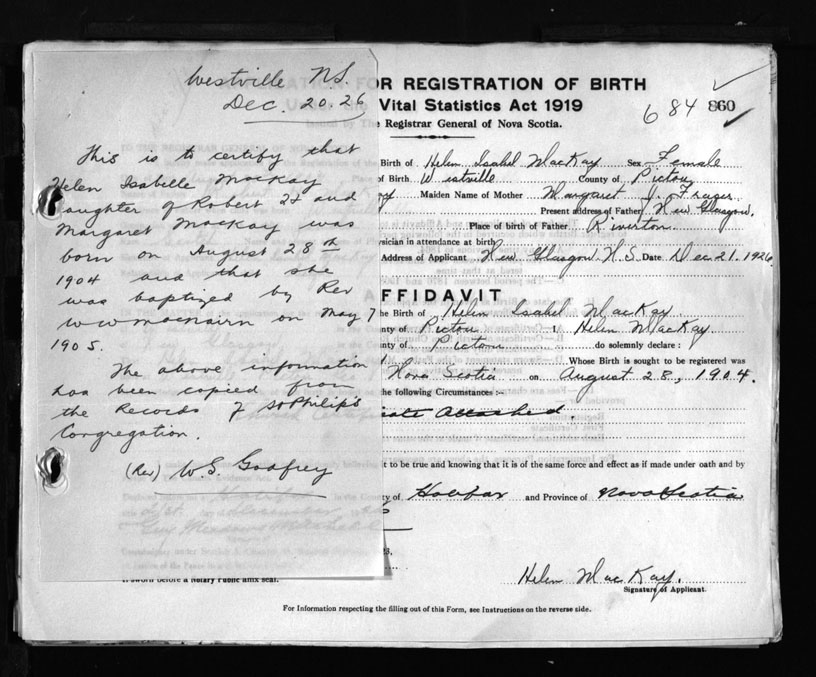 Westville N.S.
Dec. 20. 26
This is to certify that
Helen Isabelle MacKay
daughter of Robert and
Margaret MacKay was
born on August 28th
1904 and that she
was baptized by Rev
W W on May 7
1905.
The above information
has been copied from
the Records of St Philip's
Congregation.
(Rev) W.S. Godfrey
OR REGISTRATION OF BIRTH
Vital Statistics Act 1919
684 860
Registrar General of Nova Scotia.
Birth of Helen Isabel MacKay Sex Female
of Birth Westville County of Pictou
Maiden Name of Mother Margaret J. Fraser
Present address of Father New Glasgow.
Place of birth of Father Riverton.
sician in attendance at birth
Address of Applicant New Glasgow N.S. Date Dec. 21. 1926
FFIDAVIT
the Birth of Helen Isabel MacKay.
nty of Pictou I, Helen MacKay
nty of Pictou do solemnly declare :
Whose Birth is sought to be registered was
Nova Scotia on August 28, 1904.
the following Circumstances :-
cate Attached.
t to be true and knowing that it is of the same force and effect as if made under oath and by
ty of Halifax and Province of Nova Scotia
If sworn before a Notary Public affix seal.
Helen MacKay.
Signature of Applicant.
For Information respecting the filling out of this Form, see Instructions on the reverse side.